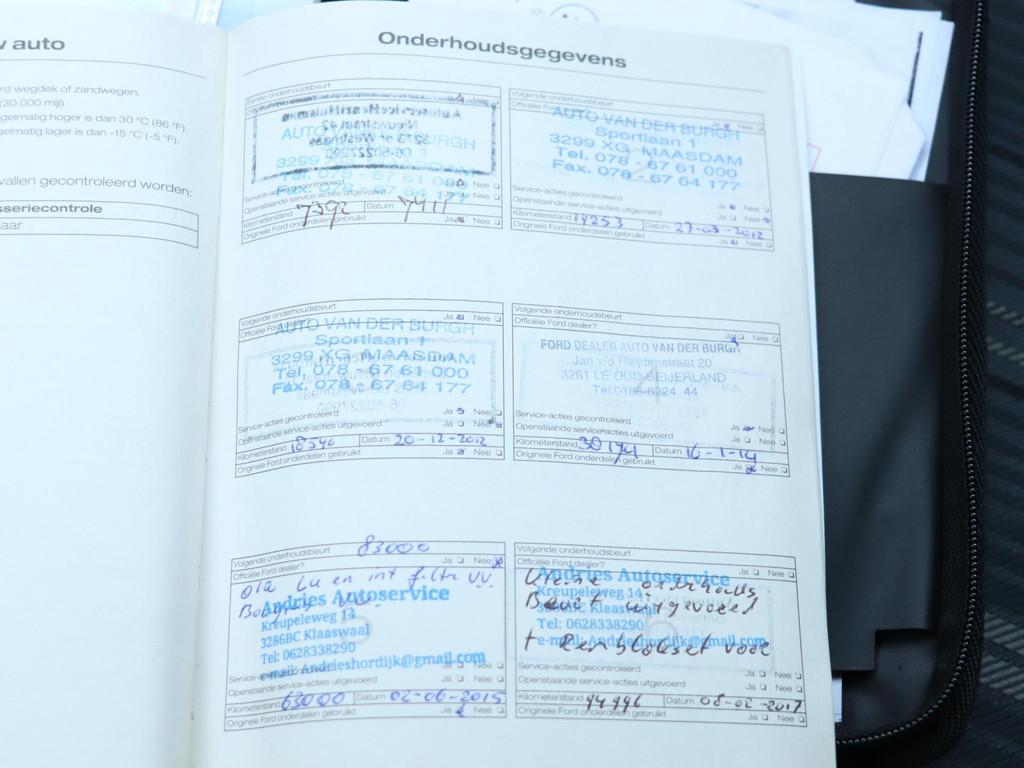 w auto
rd wegdek of zandwegen.
(30.000 mijl).
gelmatig hoger is dan 30 °C (86 °F).
gelmatig lager is dan -15 °C (-5 °F).
vallen gecontroleerd worden:
sseriecontrole
aar
Onderhoudsgegevens
Eerste onderhoudsbeurt
AUTO VAN DER BURGH
Sportlaan 1
3299 XG MAASDAM
Tel. 078 - 67 61 000
Fax. 078 - 67 64 177
Service-acties gecontroleerd Ja Nee
Openstaande service-acties uitgevoerd Ja Nee
Kilometerstand 7392 Datum
Originele Ford onderdelen gebruikt Ja Nee
Volgende onderhoudsbeurt
Officiële Ford dealer? Ja Nee
AUTO VAN DER BURGH
Sportlaan 1
3299 XG MAASDAM
Tel. 078 - 67 61 000
Fax. 078 - 67 64 177
Service-acties gecontroleerd Ja Nee
Openstaande service-acties uitgevoerd Ja Nee
Kilometerstand 14253 Datum 27-03-2012
Originele Ford onderdelen gebruikt Ja Nee
Volgende onderhoudsbeurt
Officiële Ford dealer? Ja Nee
AUTO VAN DER BURGH
Sportlaan 1
3299 XG MAASDAM
Tel. 078 - 67 61 000
Fax. 078 - 67 64 177
Service-acties gecontroleerd Ja Nee
Openstaande service-acties uitgevoerd Ja Nee
Kilometerstand 18546 Datum 20-12-2012
Originele Ford onderdelen gebruikt Ja Nee
Volgende onderhoudsbeurt
Officiële Ford dealer? Ja Nee
FORD DEALER AUTO VAN DER BURGH
Jan v/d Heijdenstraat 20
3261 LE OUD-BEIJERLAND
Tel.0186-6224 44
Service-acties gecontroleerd Ja Nee
Openstaande service-acties uitgevoerd Ja Nee
Kilometerstand 30194 Datum 16-1-14
Originele Ford onderdelen gebruikt Ja Nee
Volgende onderhoudsbeurt 83000
Officiële Ford dealer? Ja Nee
olie Lu en int filter VV.
Andries Autoservice
Kreupeleweg 14
3286BC Klaaswaal
Tel: 0628338290
e-mail: Andrieshordijk@gmail.com
Service-acties gecontroleerd Ja Nee
Openstaande service-acties uitgevoerd Ja Nee
Kilometerstand 63000 Datum 02-06-2015
Originele Ford onderdelen gebruikt Ja Nee
Volgende onderhoudsbeurt
Officiële Ford dealer? Ja Nee
Kleine onderhouds
Beurt uitgevoerd
+ Remblokset voor
Andries Autoservice
Kreupeleweg 14
3286BC Klaaswaal
Tel: 0628338290
e-mail: Andrieshordijk@gmail.com
Service-acties gecontroleerd Ja Nee
Openstaande service-acties uitgevoerd Ja Nee
Kilometerstand 94996 Datum 08-02-2017
Originele Ford onderdelen gebruikt Ja Nee